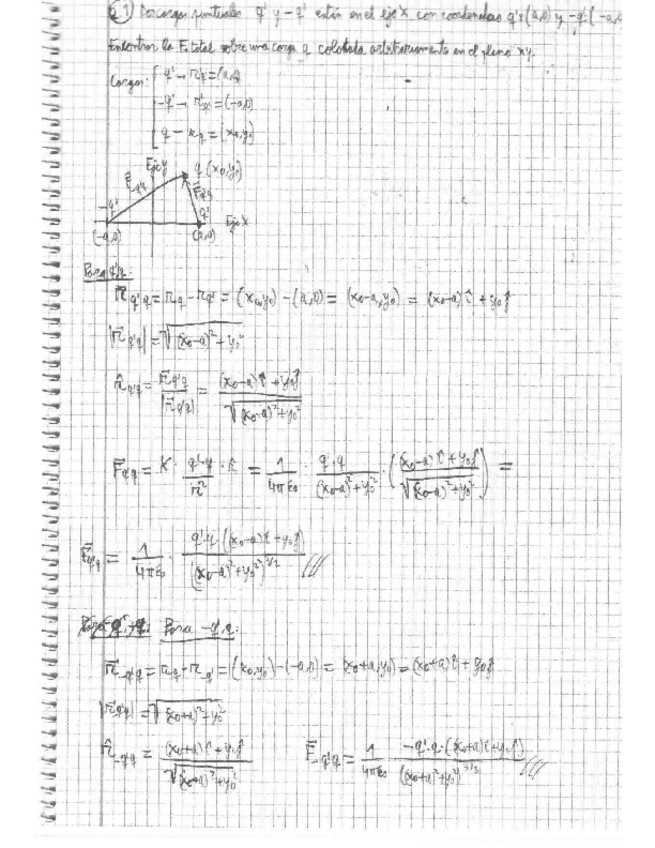 Dos cargas puntuales q' y -q' están en el eje X con coordenadas q': (a,0) y -q': (-a,0
Encontrar la F. total sobre una carga q colocada arbitrariamente en el plano xy.
Cargas: q' → r_q' = (a,0)
-q' → r_-q' = (-a,0)
q → r_q = (x₀,y₀)
Eje Y q (x₀,y₀)
F_-q'q F_q'q
-q' q' Eje X
(-a,0) (a,0)
Para q'q:
r⃗_q'q = r_q - r_q' = (x₀,y₀) - (a,0) = (x₀-a, y₀) = (x₀-a) î + y₀ ĵ
|r⃗_q'q| = √((x₀-a)² + y₀²)
r̂_q'q = r⃗_q'q / |r⃗_q'q| = ((x₀-a) î + y₀ ĵ) / √((x₀-a)² + y₀²)
F⃗_q'q = K · (q'·q / r²) · r̂ = 1/(4πε₀) · q'·q / ((x₀-a)² + y₀²) · (((x₀-a) î + y₀ ĵ) / √((x₀-a)² + y₀²)) =
F⃗_q'q = 1/(4πε₀) · q'·q · ((x₀-a) î + y₀ ĵ) / ((x₀-a)² + y₀²)^3/2
Para -q'q:
r⃗_-q'q = r_q - r_-q' = (x₀,y₀) - (-a,0) = (x₀+a, y₀) = (x₀+a) î + y₀ ĵ
|r⃗_-q'q| = √((x₀+a)² + y₀²)
r̂_-q'q = ((x₀+a) î + y₀ ĵ) / √((x₀+a)² + y₀²) F⃗_-q'q = 1/(4πε₀) · -q'·q · ((x₀+a) î + y₀ ĵ) / ((x₀+a)² + y₀²)^3/2